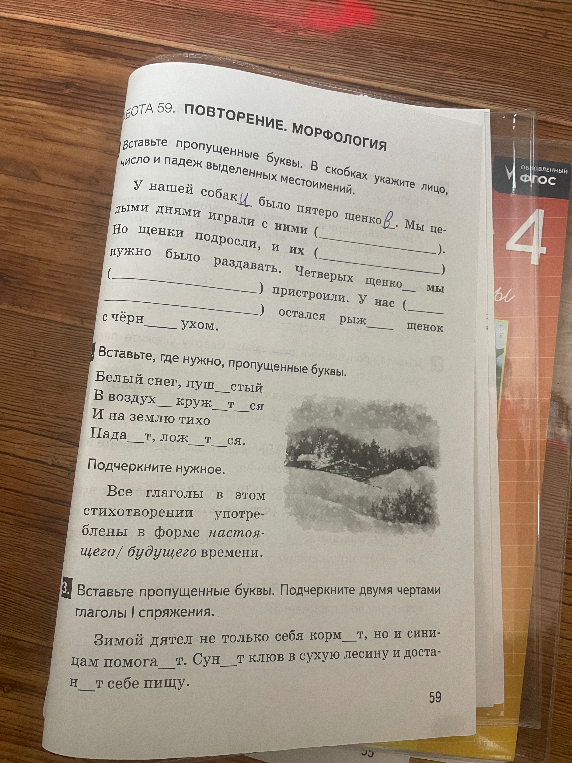 БОТА 59. ПОВТОРЕНИЕ. МОРФОЛОГИЯ
Вставьте пропущенные буквы. В скобках укажите лицо,
число и падеж выделенных местоимений.
У нашей собаки было пятеро щенков. Мы це-
лыми днями играли с ними (____________).
Но щенки подросли, и их (____________)
нужно было раздавать. Четверых щенко__ мы
(____________) пристроили. У нас (____
____________) остался рыж____ щенок
с чёрн____ ухом.
Вставьте, где нужно, пропущенные буквы.
Белый снег, пуш__стый
В воздух__ круж__т__ся
И на землю тихо
Пада__т, лож__т__ся.
Подчеркните нужное.
Все глаголы в этом
стихотворении употре-
блены в форме настоя-
щего/ будущего времени.
3. Вставьте пропущенные буквы. Подчеркните двумя чертами
глаголы I спряжения.
Зимой дятел не только себя корм__т, но и сини-
цам помога__т. Сун__т клюв в сухую лесину и доста-
н__т себе пищу.
59
ОБНОВЛЁННЫЙ
ФГОС
4
ы